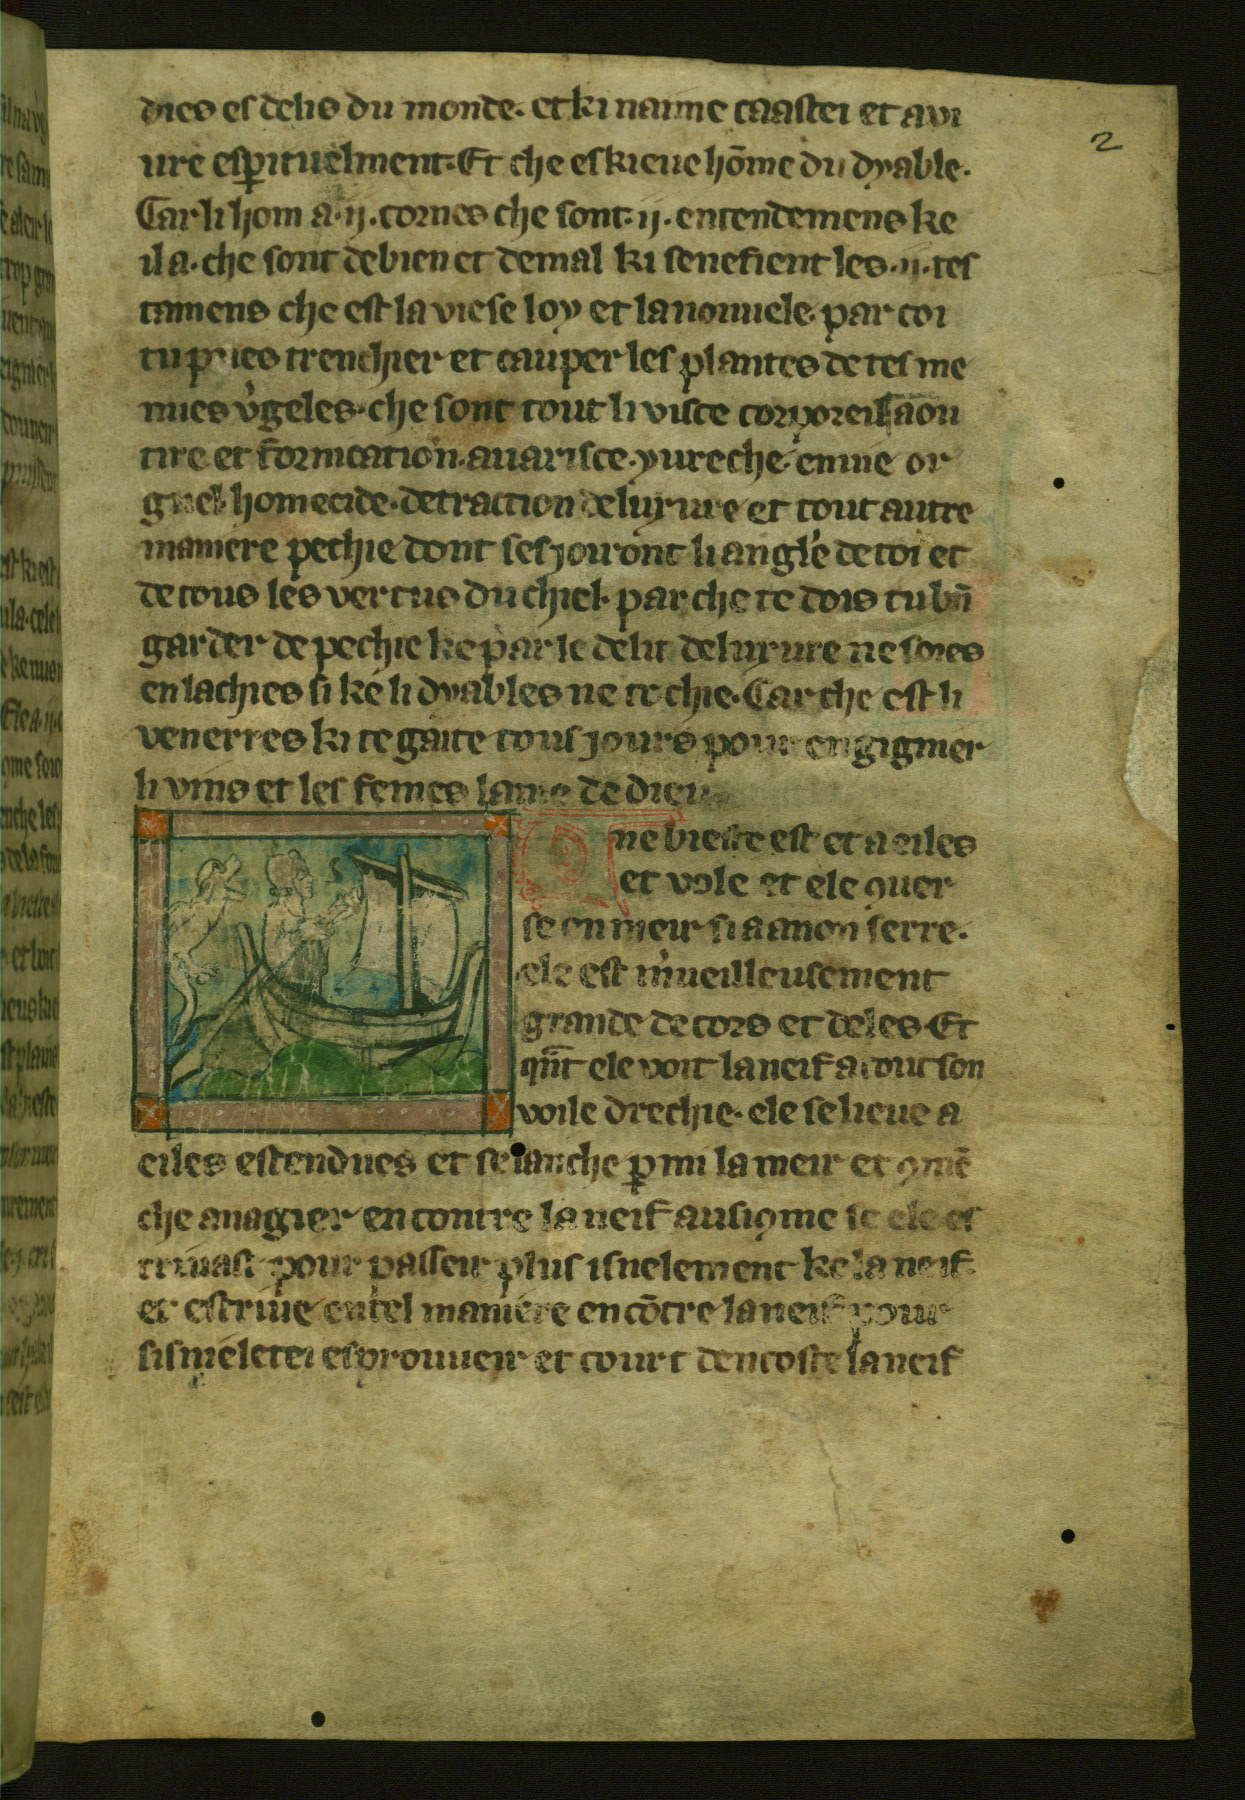 dies es delis du monde. et ki naime caastei et a vi
ure esperituelment. Et che eskieue hōme du dyable.
Car li hom a .ij. cornes che sont .ij. entendemens ke
il a. che sont de bien et de mal ki senefient les .ij. tes
tamens che est la viese loy et la nouuele. par coi
tu pues trenchier et cauper les plantes de tes me
nues v'geles. che sont tout li visce corporeil aou
tire et fornication. auarisce. yureche. enuie or
guel homecide. detraction de luxure et tout autre
maniere pechie dont sesjouront li angle de toi et
de tous les vertus du chiel. par che te dois tu bn̄
garder de pechie ke par le delit de luxure ne soies
enlachies si ke li dyables ne te chie. Car che est li
venerres ki te gaite tous jours pour engignier
li vins et les femes lame de dieu
Vne bieste est et a eiles
et vole et ele quer
se en meir si a a non serre.
ele est m'ueilleusement
grande de cors et deles. Et
qn̄t ele voit la neif a tout son
voile drechie. ele se lieue a
eiles estendues et se lanche pmi la meir et 9mē
che a nagier encontre la neif ausi 9me se ele es
triuast pour passeir plus isnelement ke la neif.
et estriue en tel maniere encōtre la neif pour
si snieletei esprouueir et court dencoste la neif
2